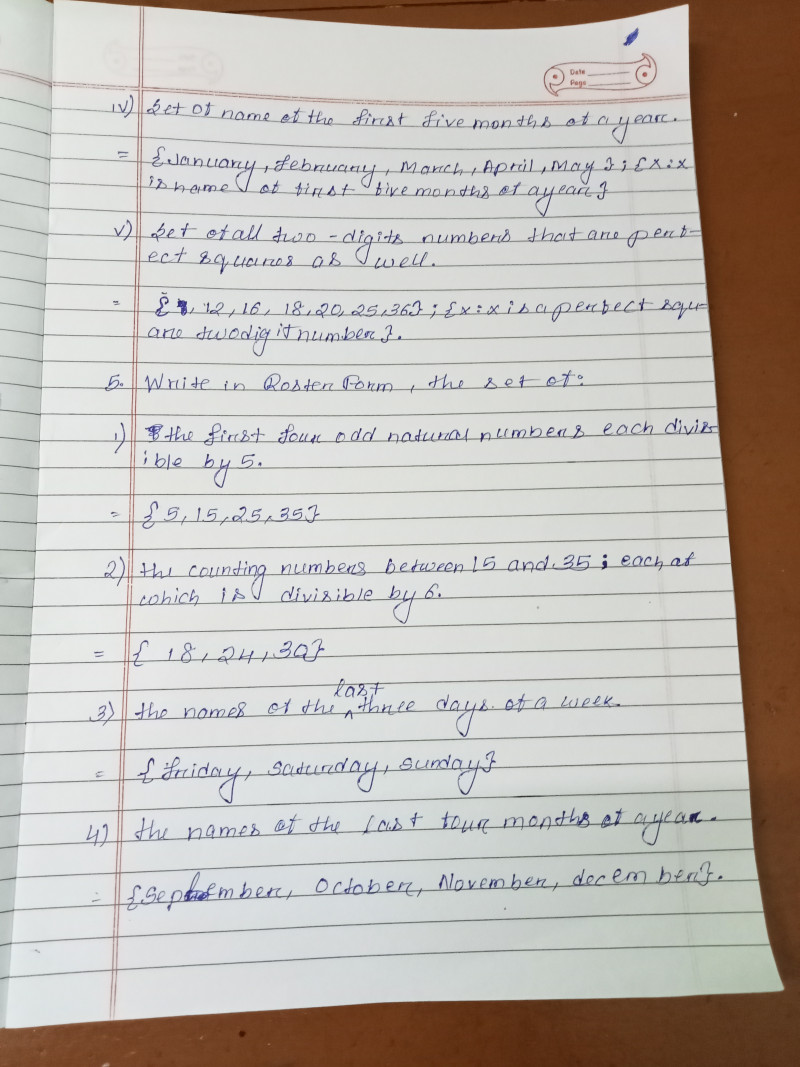 Date
Page
iv) Set of name of the first five months of a year.
= {January, February, March, April, May}; {x:x
is name of first five months of a year}
v) Set of all two-digits numbers that are perf-
ect squares as well.
= { 12, 16, 18, 20, 25, 36}; {x:x is a perfect squ-
are two digit number}.
5. Write in Roster Form, the set of:
1) the first four odd natural numbers each divis-
ible by 5.
= {5, 15, 25, 35}
2) the counting numbers between 15 and 35; each of
which is divisible by 6.
= { 18, 24, 30}
3) the names of the last three days of a week.
= {friday, saturday, sunday}
4) the names of the last four months of a year.
= {September, October, November, december}.